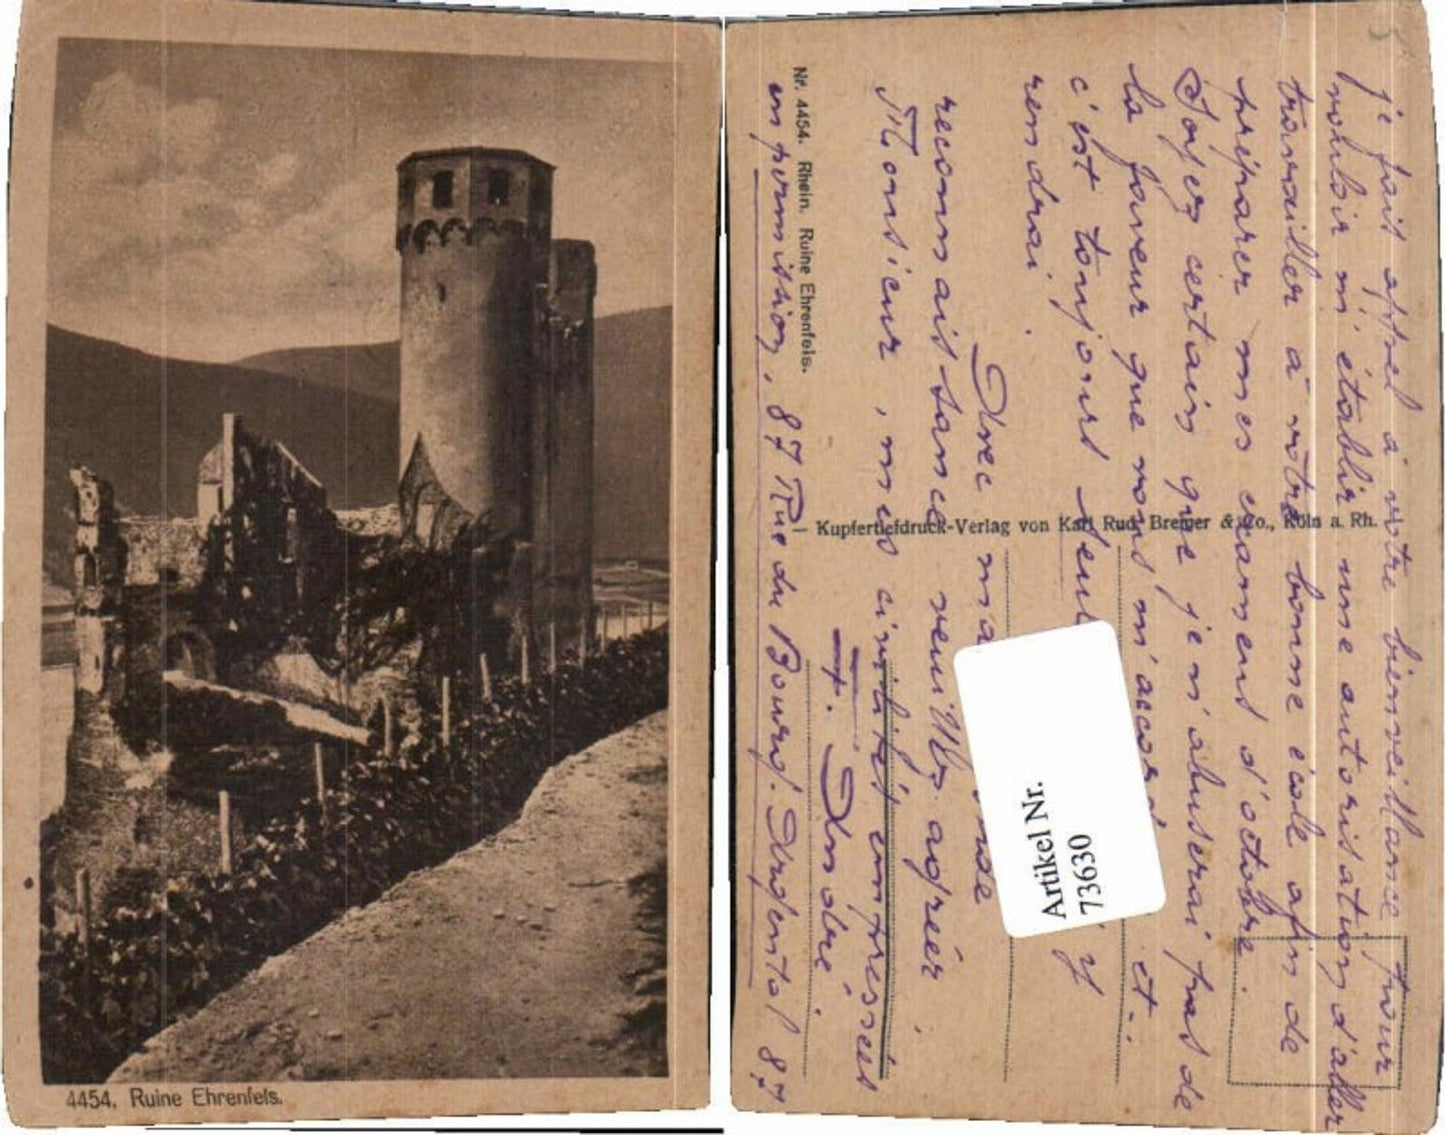 4454. Ruine Ehrenfels.
5
je fais appel à votre bienveillance pour
vouloir m'établir une autorisation d'aller
travailler à votre bonne école afin de
préparer mes examens d'octobre.
Soyez certain que je n'abuserai pas de
la faveur que vous m'accord et..
c'est toujours seul y
rendrai.
Avec ma
reconnaissance veuillez agréer,
Monsieur, mes civilités empressées
F. André.
en permission, 87 Rue du Bourg. Argental 87
Nr. 4454. Rhein. Ruine Ehrenfels.
Kupfertiefdruck-Verlag von Karl Rud. Bremer & Co., Köln a. Rh.
Artikel Nr.
73630